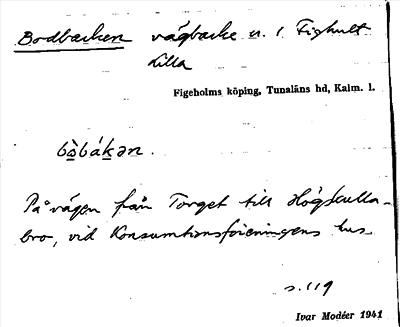 Bodbacken vägbacke n. l. Fighult
Lilla
Figeholms köping, Tunaläns hd, Kalm. l.
bò̱bákǝn.
På vägen från Torget till Högskulla-
bro, vid Konsumtionsföreningens hus
s. 119
Ivar Modéer 1941